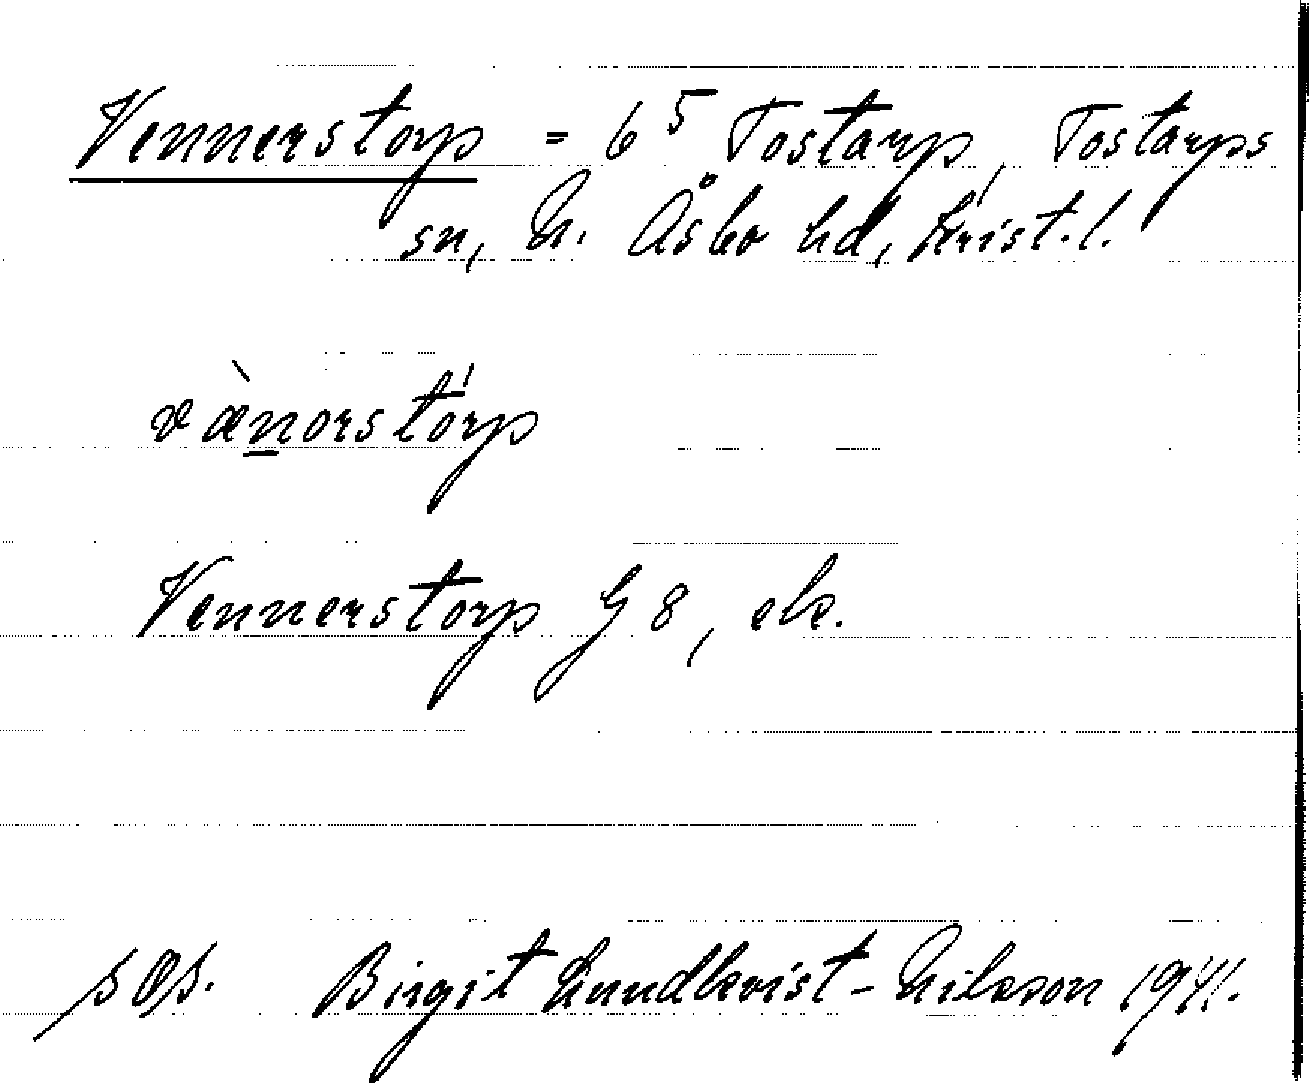 Vennerstorp = 6⁵ Tostarp, Tostarps
sn, N. Åsbo hd, Krist. l.
væ̀norstórp
Vennerstorp G 8, ek.
Birgit Lundkvist-Nilsson 1941.